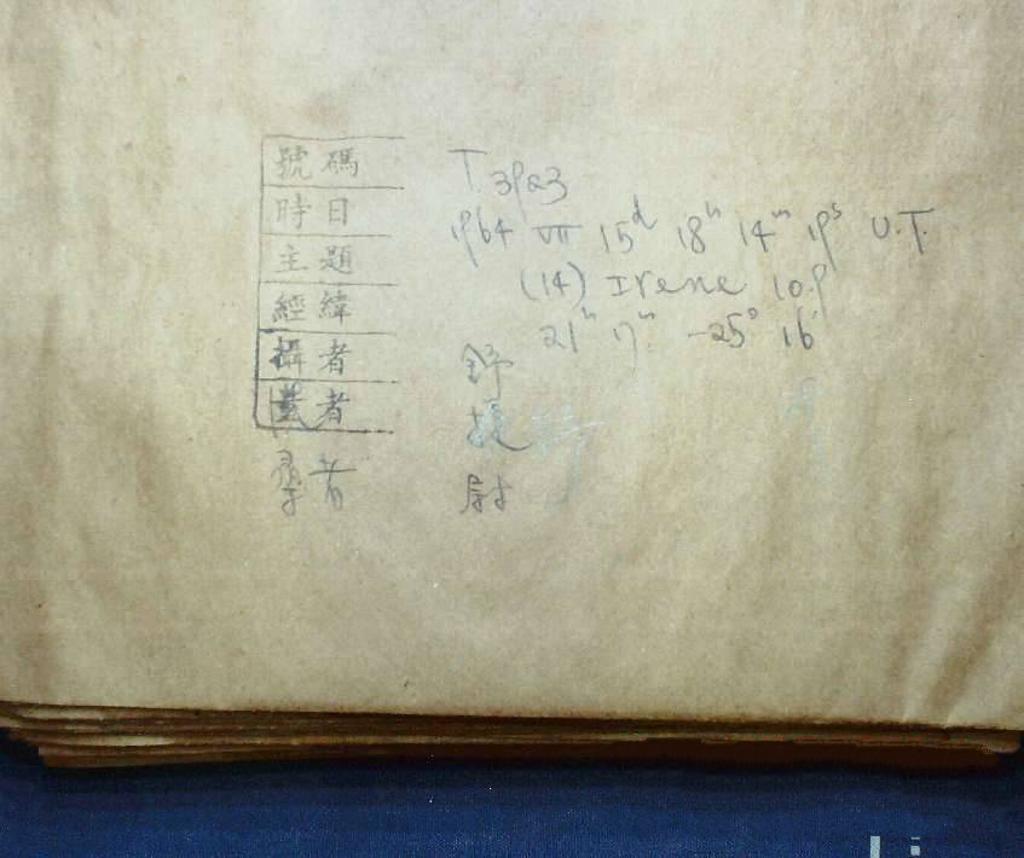 號碼 T. 3923
時日 1964 VII 15ᵈ 18ʰ 14ᵐ 19ˢ U.T.
主題 (14) Irene 10.9
經緯 21ʰ 17ᵐ -25° 16'
攝者 舒
者
者 尉